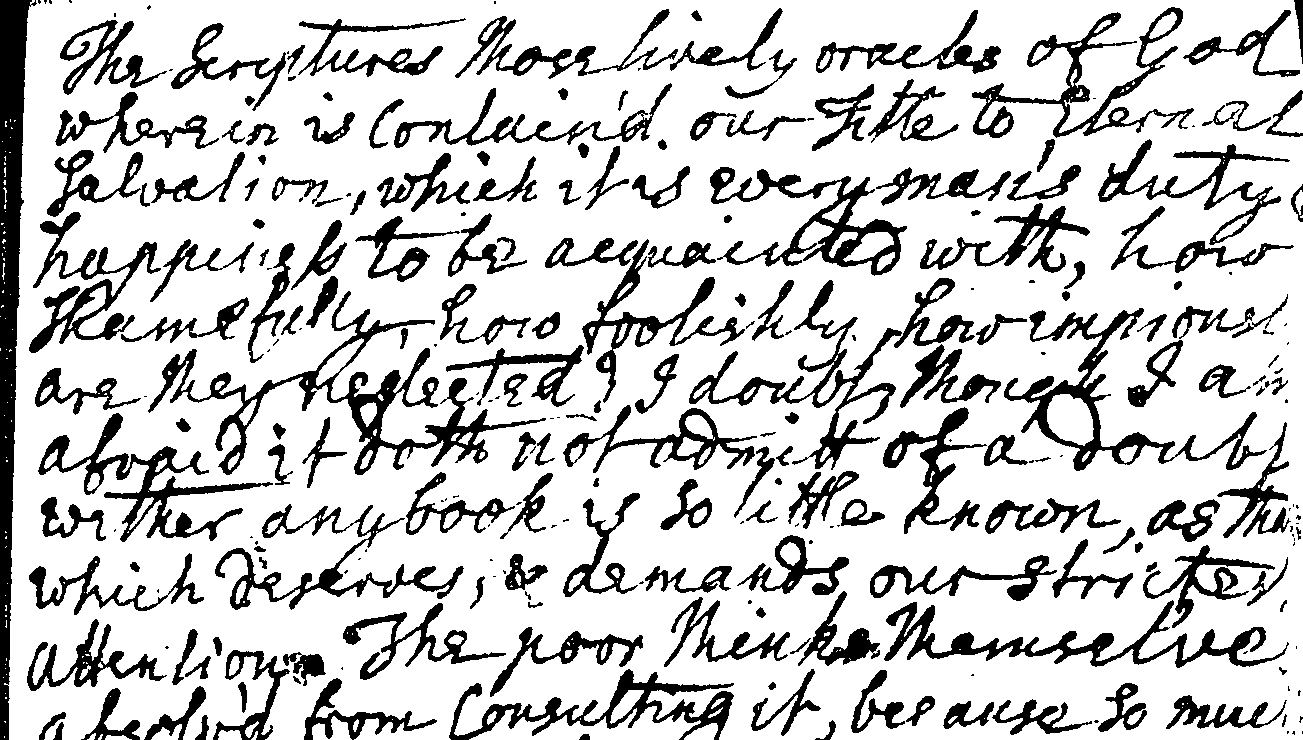 The Scriptures those lively oracles of God
wherein is Contain'd. our Title to Eternal
Salvation, which it is every man's duty
happiness to be acquainted with, how
shamefully, how foolishly, how impiousl
are they neglected? I doubt, though I am
afraid it doth not admitt of a doubt
wither any book is so little known, as tha
which deserves, & demands, our strictes
attention. The poor think themselve
absolv'd from Consulting it, because so muc